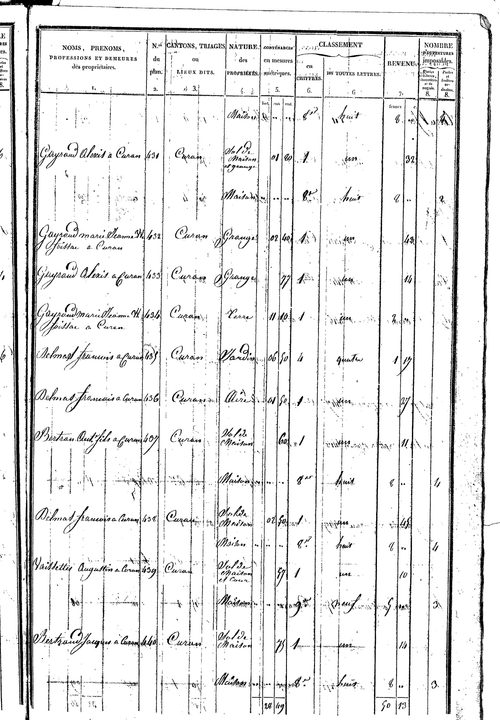 NOMS, PRENOMS, PROFESSIONS ET DEMEURES des propriétaires. N.os du plan. CANTONS, TRIAGES ou LIEUX DITS. NATURE des PROPRIÉTÉS. CONTENANCES en mesures métriques. CLASSEMENT en CHIFFRES. EN TOUTES LETTRES. REVENU. NOMBRE D'OUVERTURES imposables.
1. 2. 3. 4. 5. 6. 6. 7. 8. 8.
Maison 8.e huit 8
Gayraud Alexis a Curan 431 Curan Sol de Maison et grange 01 80 1 un 32
Maison 8.e huit 8 2
Gayraud marie Jeanne 432 Curan Grange 02 40 1 un 43
a Curan
Gayraud Alexis a Curan 433 Curan Grange 77 1 un 14
Gayraud marie Jeanne 434 Curan Terre 11 10 1 un 2
a Curan
Delmas francois a Curan 435 Curan Jardin 06 50 4 quatre 1 17
Delmas francois a Curan 436 Curan Aire 01 50 1 un 27
Bertrand fils a Curan 437 Curan Sol de Maison 60 1 un 11
Maison 8.e huit 8 4
Delmas francois a Curan 438 Curan Sol de Maison 02 50 1 un 45
Maison 8.e huit 8 4
Augustin a Curan 439 Curan Sol de Maison et Cour 57 1 un 10
Maison 9.e neuf 5 3
Bertrand Jacques a Curan 440 Curan Sol de Maison 75 1 un 14
Maison 8.e huit 8 3
28 49 50 13